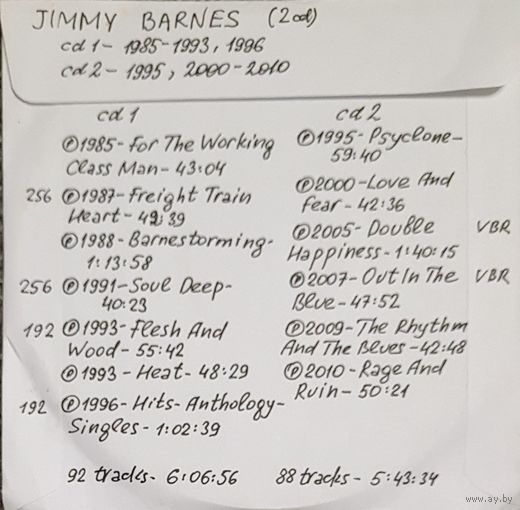 JIMMY BARNES (2cd)
cd 1 - 1985-1993, 1996
cd 2 - 1995, 2000-2010
cd 1
℗1985-For The Working
Class Man-43:04
256 ℗1987-Freight Train
Heart-49:39
℗1988-Barnestorming-
1:13:58
256 ℗1991-Soul Deep-
40:23
192 ℗1993-Flesh And
Wood-55:42
℗1993-Heat-48:29
192 ℗1996-Hits-Anthology-
Singles-1:02:39
92 tracks-6:06:56
cd 2
℗1995-Psyclone-
59:40
℗2000-Love And
Fear-42:36
℗2005-Double VBR
Happiness-1:40:15
℗2007-Out In The VBR
Blue-47:52
℗2009-The Rhythm
And The Blues-42:48
℗2010-Rage And
Ruin-50:21
88 tracks-5:43:34
www.ay.by